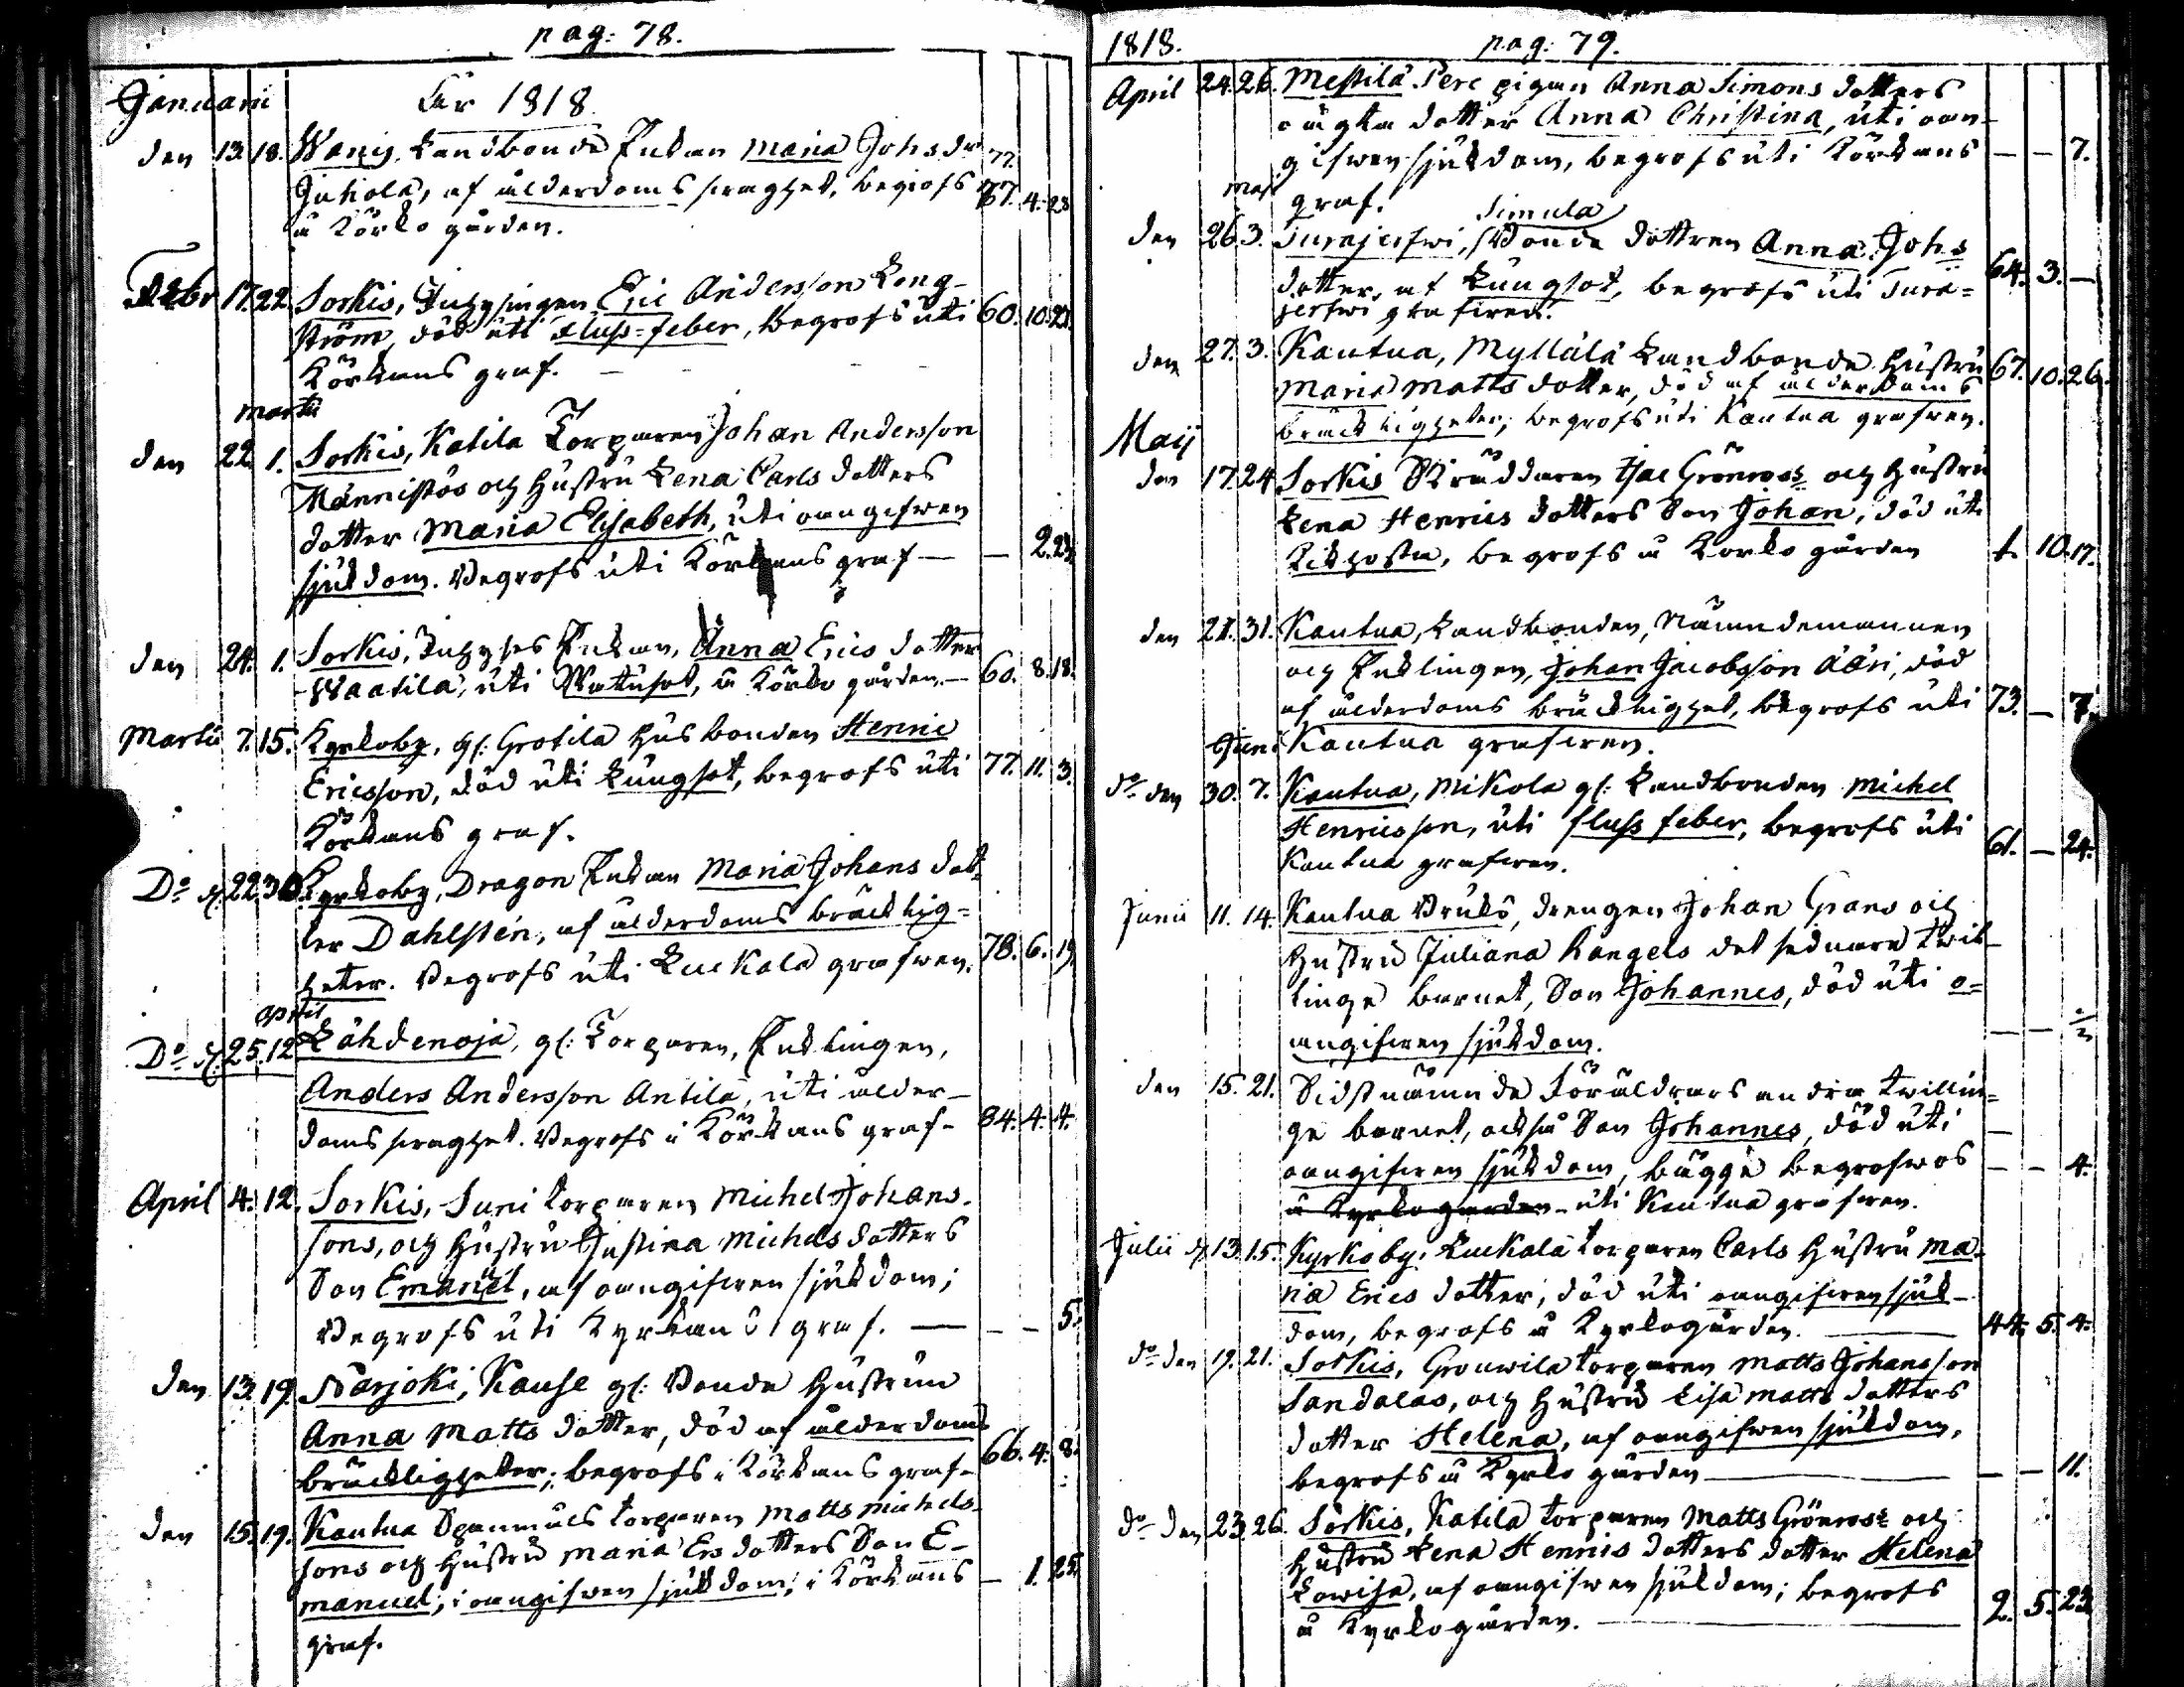 pag: 78.
Januarii
År 1818.
den 13. 18. Wanig. Landbonde Enkan Maria Johsdr 77.
Juhola, af ålderdoms swaghet, begrofs 77. 4. 23
å Körko gården.
Febr 17. 22. Sorkis, Inhysingen Eric Andersson Long-
ström, död uti fluss-feber, begrofs uti 60. 10. 21.
Körkans graf.
martii
den 22. 1. Sorkis, Katila Torparen Johan Andersson
Männistös och Hustru Lena Carls dotters
dotter Maria Elisabeth, uti oangifwen
sjukdom. Begrofs uti Körkans graf — — 2. 23.
den 24. 1. Sorkis, Inhyses Enkan, Anna Erics dotter
Waatila, uti Watusot, å Körko gården. — 60. 8. 18.
Martii 7. 15. Kyrkoby, gl: Grotila Husbonden Henric
Ericsson, död uti Lungsot, begrofs uti 77. 11. 3.
Körkans graf.
Do d. 22. 30. Kyrkoby, Dragon Enkan Maria Johans dot-
ter Dahlsten, af ålderdoms bräcklig=
heter. Begrofs uti Luckala grafwen. 78. 6. 19.
April
Do d. 25. 12 Lähdenoja, gl: Torparen, Enklingen,
Anders Andersson Antila, uti ålder-
doms swaghet. Begrofs i Körkans graf- 84. 4. 4.
April 4. 12. Sorkis, Suni torparen Michel Johans-
sons, och Hustru Justina Michels dotters
Son Emanuel, af oangifwen sjukdom;
Begrofs uti Kyrkans graf. — — — 5.
den 13. 19. Närjoki, Kause gl: Bonde Hustrun
Anna Matts dotter, död af ålderdoms
bräckligheter; begrofs i Körkans graf- 66. 4. 8.
den 15. 19. Kautua Spannuls torparen Matts Michels-
sons och Hustru Maria Ers dotters Son E-
manuel, i oangifwen sjukdom; i Körkans — 1. 25
graf.
1818. pag: 79.
April 24. 26. Mestilä Pere pigan Anna Simons dotters
oägta dotter Anna Christina, uti oan-
gifwen sjukdom, begrofs uti Körkans — — 7.
maji graf.
Simula
den 26. 3. Turajerfwi, Bonde dottren Anna Johs
dotter, af Lungsot, begrofs uti Tura= 64. 3. —
jerfwi grafwen.
den 27. 3. Kautua, Myllälä Landbonde Hustru 67. 10. 26.
Maria Matts dotter, död af ålderdoms
bräckligheter; begrofs uti Kautua grafwen.
Maij
den 17. 24 Sorkis Skräddaren Isac Grönroos och Hustru
Lena Henrics dotters Son Johan, död uti
Kikhosta, begrofs å Korko gården 1. 10. 17.
den 21. 31. Kautua, Landbonden, Nämndemannen
och Enklingen, Johan Jacobsson Ääri, död
af ålderdoms bräcklighet, begrofs uti 73. — 7.
Juni Kautua grafwen.
do den 30. 7. Kautua, Mikola gl: Landbonden Michel
Henricsson, uti fluss feber, begrofs uti 61. — 24.
Kautua grafwen.
Junii 11. 14. Kautua Bruks, drengen Johan Grans och
Hustru Juliana Rangels det sednare twil-
linge barnet, Son Johannes, död uti o=
angifwen sjukdom. — — ½
den 15. 21. Sidstnämnde Föräldrars andra twillin=
ge barnet, också Son Johannes, död uti
oangifwen sjukdom, bägge begrofwos — — 4.
å Kyrko gården uti Kautua grafwen.
Julii d. 13. 15. Kyrkoby: Luckala torparen Carls Hustru Ma-
ria Erics dotter, död uti oangifwen sjuk-
dom, begrofs å Kyrkogården. — 44. 5. 4.
do den 19. 21. Sorkis, Grouwila torparen Matts Johansson
Sandalas, och Hustru Lisa Matts dotters
dotter Helena, af oangifwen sjukdom,
begrofs å Kyrko gården — — — 11.
do den 23. 26. Sorkis, Katila torparen Matts Grönroos och
Hustru Lena Henrics dotters dotter Helena
Lowisa, af oangifwen sjukdom; begrofs
å Kyrkogården. — 2. 5. 23